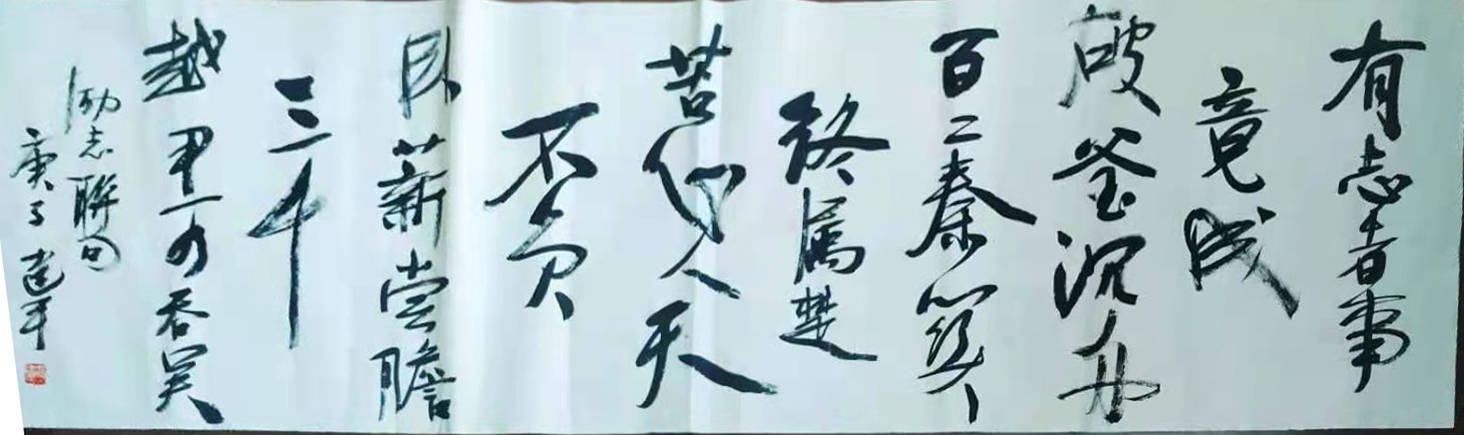 有志者事
竟成
破釜沉舟
百二秦关
终属楚
苦心人天
不负
卧薪尝膽
三千
越甲可吞吴
励志联句
庚子建平